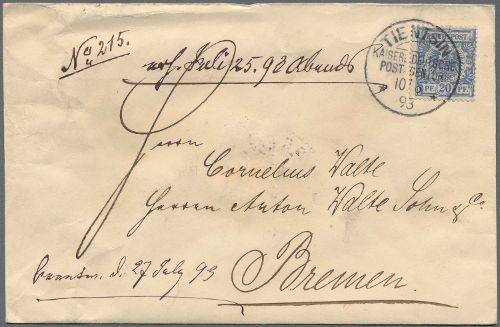 No 215.
Juli 25. 92 Abends
TIENTSIN
KAISERL. DEUTSCHE
POST-AGENTUR
10
93
POST
PF. 20 PF.
Herrn
Cornelius Walte
Herren Anton Walte Sohn & Co
Bremen.
d. 27 July 93